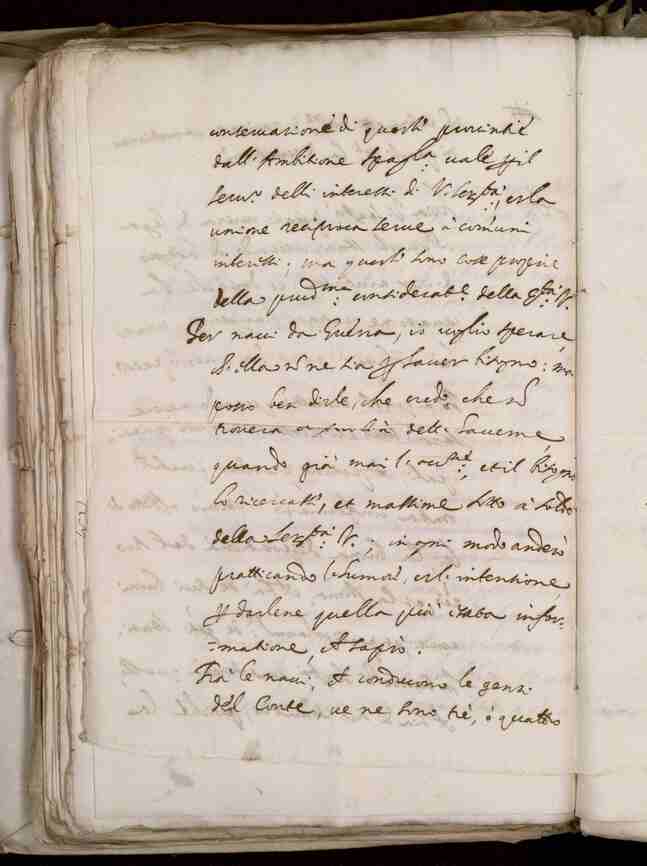 conseruatione di queste prouintie
dall'Ambitione Spag.la uale p il
seru.o delli interessi di V. Ser.tà, et la
unione reciproca serue à com̃uni
interessi; ma questi sono cose proprie
della prud.ma considerat.e della S.tà V.a
Per naui da Guerra, io uoglio sperare,
ch'ella nõ ne sia p hauer bisogno: ma
posso ben dirle, che credo che nõ
trouerà dell' hauerne,
quando già mai l' et il bisogno
lo ricercasse, et massime sotto il soldo
della Ser.tà V.; in ogni modo anderò
pratticando l'humori, et l'intentione
p darlene quella più essata infor-
-matione, ch saprò.
Frà le naui, ch conducono le genti
del Conte, ue ne sono trè, ò quattro